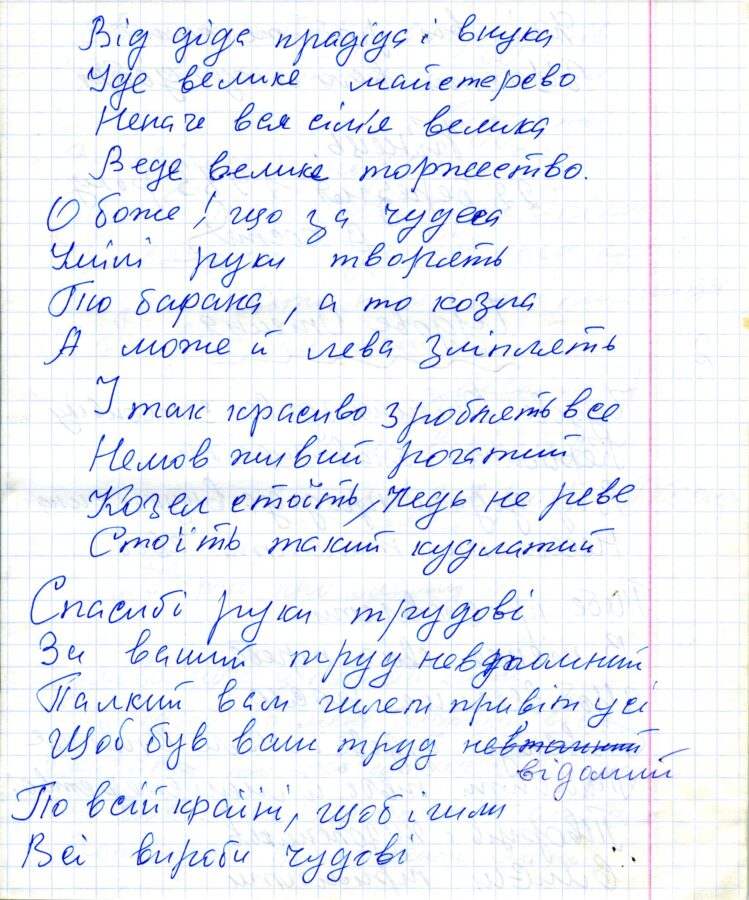 Від діда прадіда і внука
Іде велике майстерево
Неначе вся сімя велика
Веде велике торжество.
О боже! що за чудеса
Умілі руки творять
То барана, а то козла
А може й лева зліплять
І так красиво зроблять все
Немов живий рогатий
Козел стоїть, ледь не реве
Стоїть такий кудлатий
Спасибі руки трудові
За ваший труд невтомний
Палкий вам шлем привіт усі
Щоб був ваш труд невтомний
відомий
По всій країні, щоб ішли
Всі вироби чудові